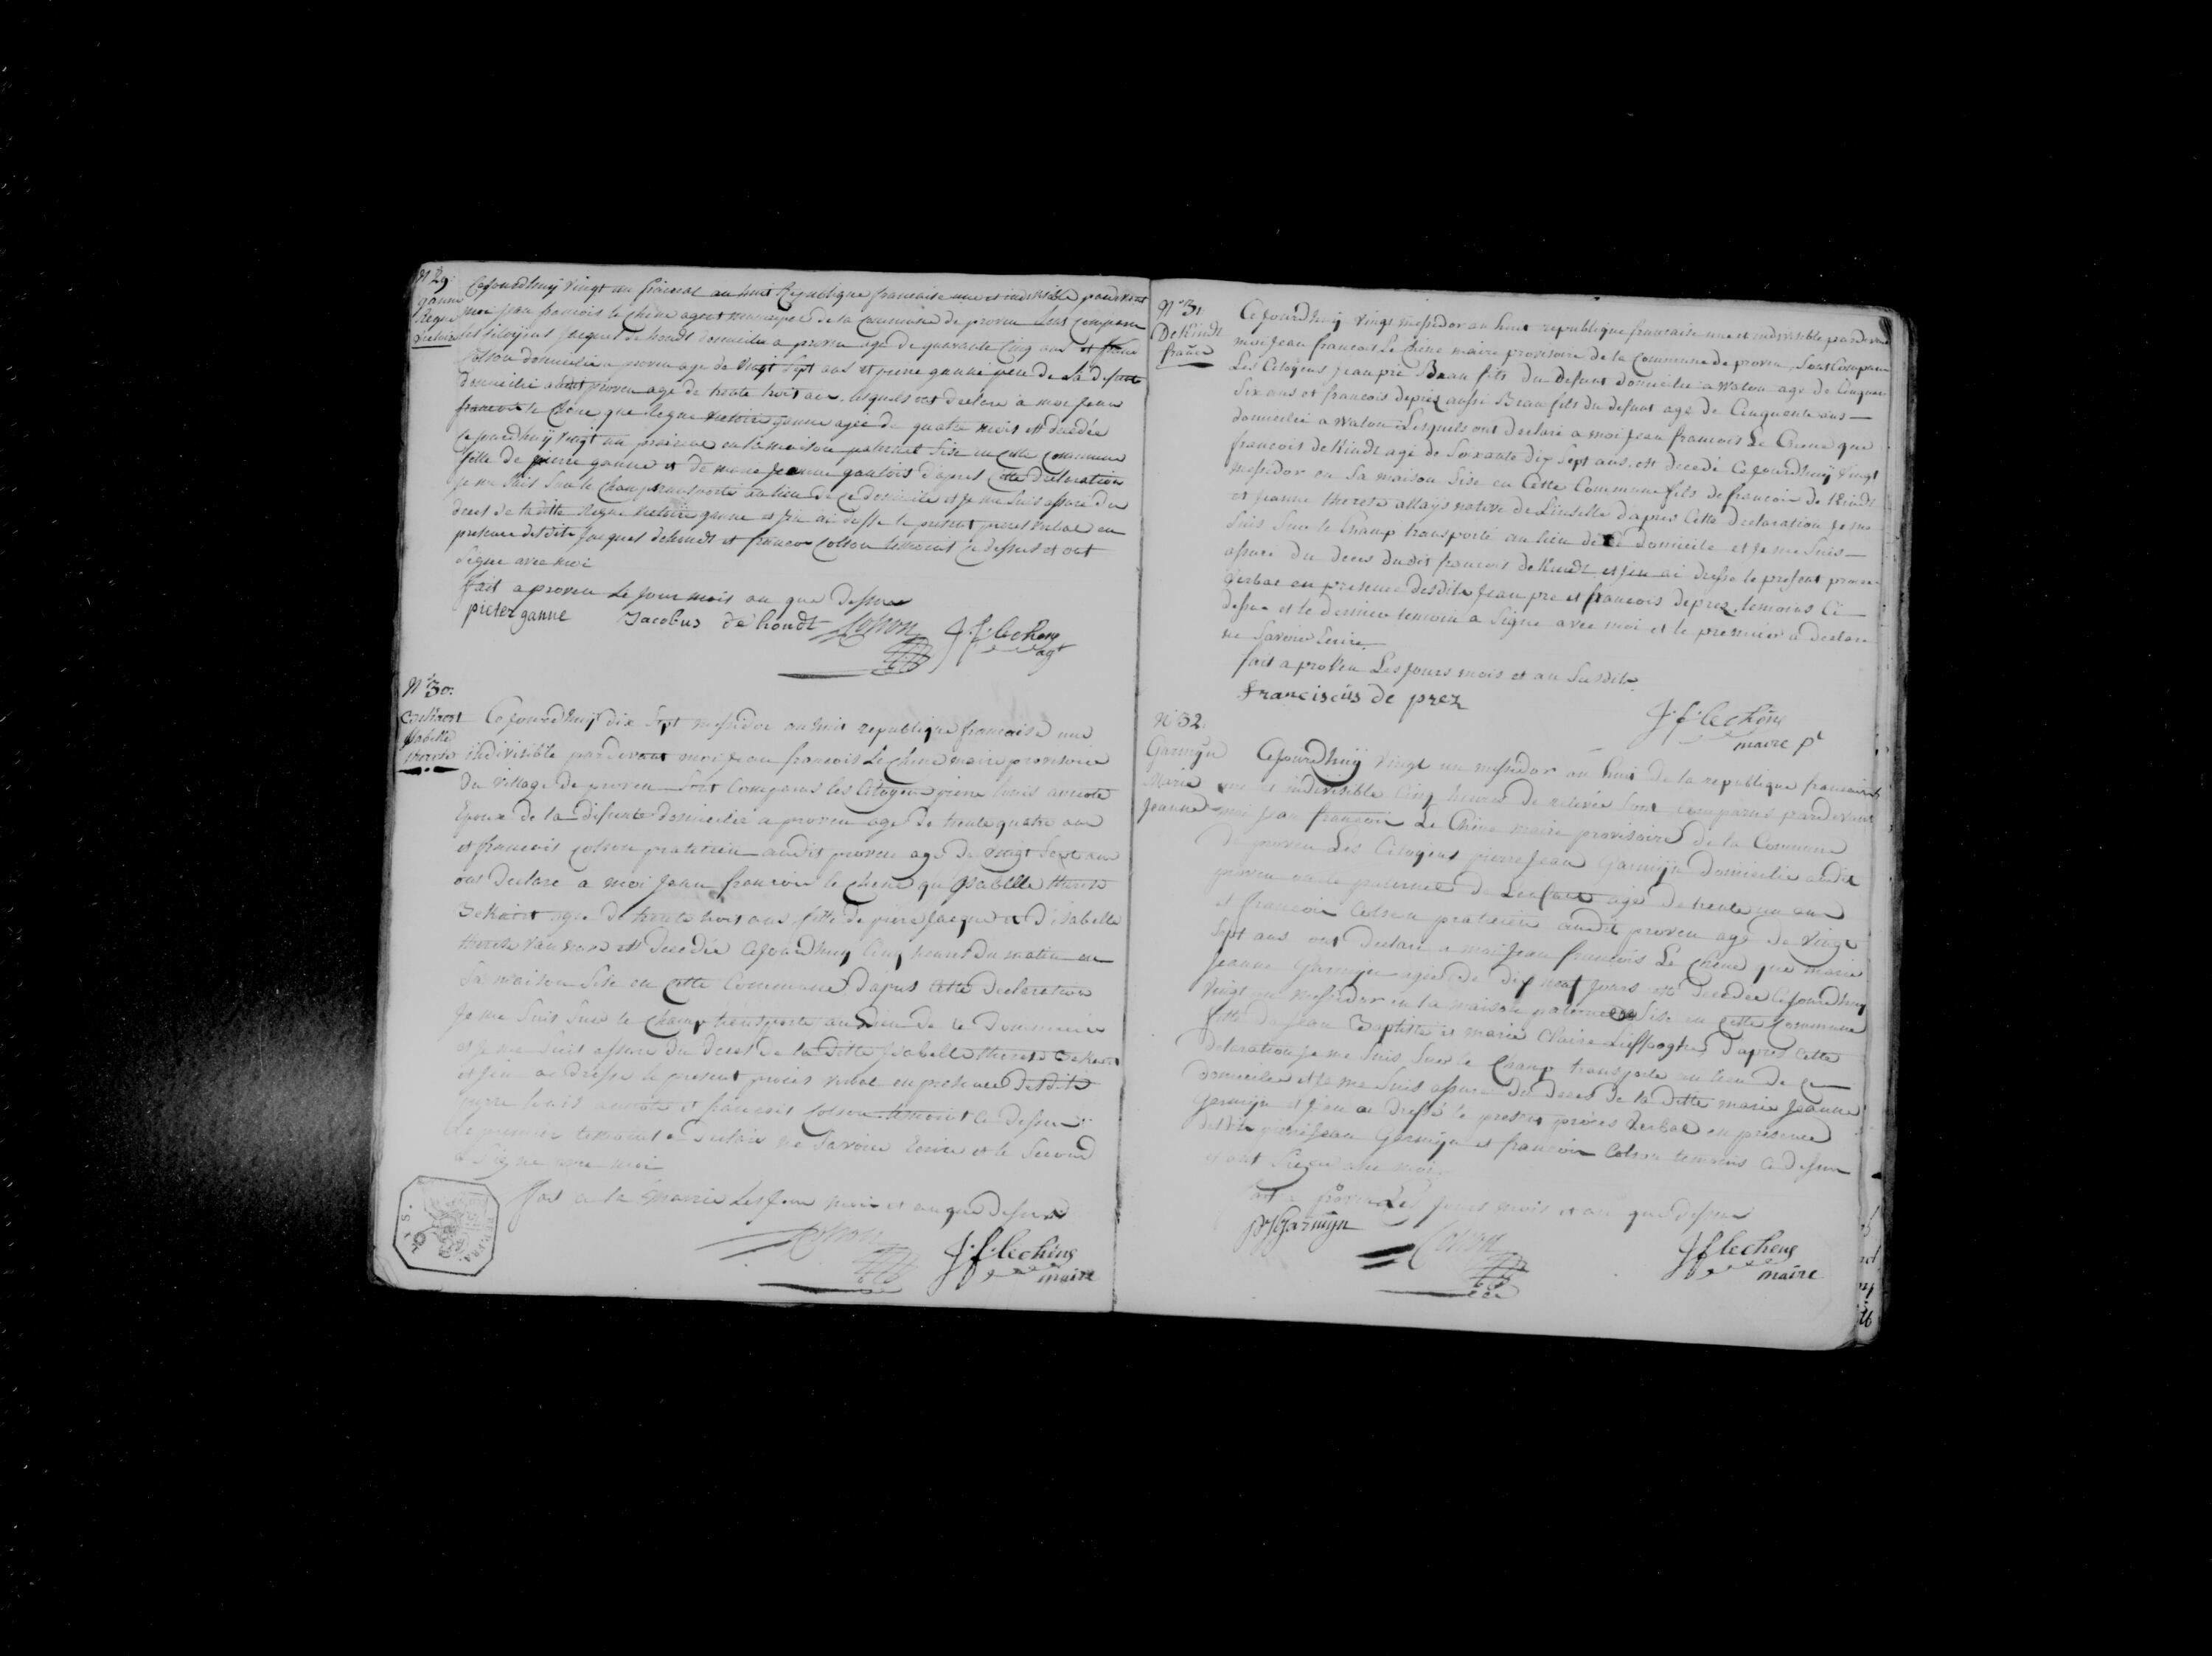 N° 29
ganne
Regne
Victoire
Cejourdhuÿ vingt un prairial an huit Republique francaise une et indivisible pardevant
moi Jean francois le chêne agent municipal de la Commune de proven sont comparu
les citoijens Jacques de hondt domicilié a proven agé de quarante Cinq ans et franc
Colson domicilié a proven age de vingt sept ans et pierre ganne pere de la defunte
domicilié audit proven age de trente huit ans lesquels ont declaré à moi Jean
francois le Chêne que Regne Victoire ganne agée de quatre mois est decedée
Cejourdhuÿ vingt un prairial en la maison paternel Sise en cette commune
fille de pierre ganne et de marie Jeanne gaulois d'apres cette declaration
Je me suis sur le Champ transporté au lieu de ce domicile et Je me suis assuré du
deces de la ditte Regne Victoire ganne et j'en ai dressé le present procet verbal en
presence desdits Jacques dehondt et francois Colson temoins ci dessus et ont
Signé avec moi
fait a proven Le jour mois an que dessus
pieter ganne Jacobus de hondt Colson J: f: lechene
agt
N° 30:
Bekaert
Isabelle
therese
Cejourdhuÿ dix Sept messidor an huit republique francaise une
indivisible pardevant moi Jean francois Le chêne maire provisoire
du village de proven sont Comparus les Citoyens pierre louis
Epoux de la defunte domicilié a proven agé de trente quatre ans
et francois Colson praticien audit proven agé de vingt sept ans
ont declaré a moi Jean francois le chêne qu'Isabelle therese
Bekaert agée de trente huit ans fille de pierre Jacques et d'isabelle
therese est decedée cejourdhuy Cinq heures du matin en
Sa maison Sise en cette Commune d'apres cette declaration
Je me Suis Sur le Champ transporté au Lieu de ce Domicile
et Je me Suis assuré du deces de la ditte Isabelle therese Bekaert
et j'en ai dressé le present procès verbal en presence desdits
pierre louis et francois Colson temoins ci dessus
Le premier temoins a declaré ne Savoir Ecrire et le Second
a Signé avec moi
fait a la mairie Les Jour mois et an que dessus
Colson J: f: lechêne
maire
N° 31
De Kindt
franc
Cejourdhuÿ vingt messidor an huit republique francaise une et indivisible pardevant
moi Jean francois Le Chêne maire provisoire de la Commune de proven Sont Comparu
Les Citoÿens Jean pré Beau fils du defunt domicilié a Watou agé de Cinquante
Six ans et francois deprez aussi Beau fils du defunt agé de Cinquante ans —
domicilié a Watou Lesquels ont declaré a moi Jean francois Le Chene que
francois de Kindt agé de Soixante dix Sept ans est decedé Cejourdhuÿ vingt
messidor en Sa maison Sise en Cette Commune fils de francois de Kindt
et Jeanne therese allaÿs native de Linselle d'apres Cette declaration Je me
Suis Sur le Champ transporté au lieu de Ce domicile et Je me Suis —
assuré du deces dudit francois de Kindt et j'en ai dressé le present proces
verbal en presence desdits Jean pre et francois deprez temoins Ci —
dessus et le dernier temoin a Signé avec moi et le premier a declaré
ne Savoir Ecrire
fait a proven Les Jours mois et an Susdits
franciscüs de prez
J: f: lechêne
maire pl
N° 32
Garmÿn
Marie
Jeanne
Cejourdhuÿ vingt un messidor an huit de la republique francaise
une et indivisible Cinq heures de relevée Sont comparus pardevant
moi Jean francois Le Chêne maire provisoire de la Commune
de proven Les Citoyens pierre Jean Garmijn domicilié audit
proven oncle paternel de Lenfant agé de trente un ans
et francois Colson praticien audit proven agé de vingt
Sept ans ont declaré a moi Jean francois Le Chêne que marie
Jeanne Garmijn agée de dix neuf Jours est decedée Cejourdhuy
vingt un messidor en la maison paternelle Sise en cette Commune
fille de Jean Baptiste et marie Claire d'apres cette
declaration Je me Suis Sur le Champ transporté au lieu de ce
domicile et Je me Suis assuré du deces de la ditte marie Jeanne
Garmijn et j'en ai dressé le present procès verbal en présence
desdits pierre Jean Garmijn et francois Colson temoins Ci dessus
et ont Signé avec moi
fait a proven Les Jours mois et an que dessus
PJGarmÿn Colson J f lechene
maire